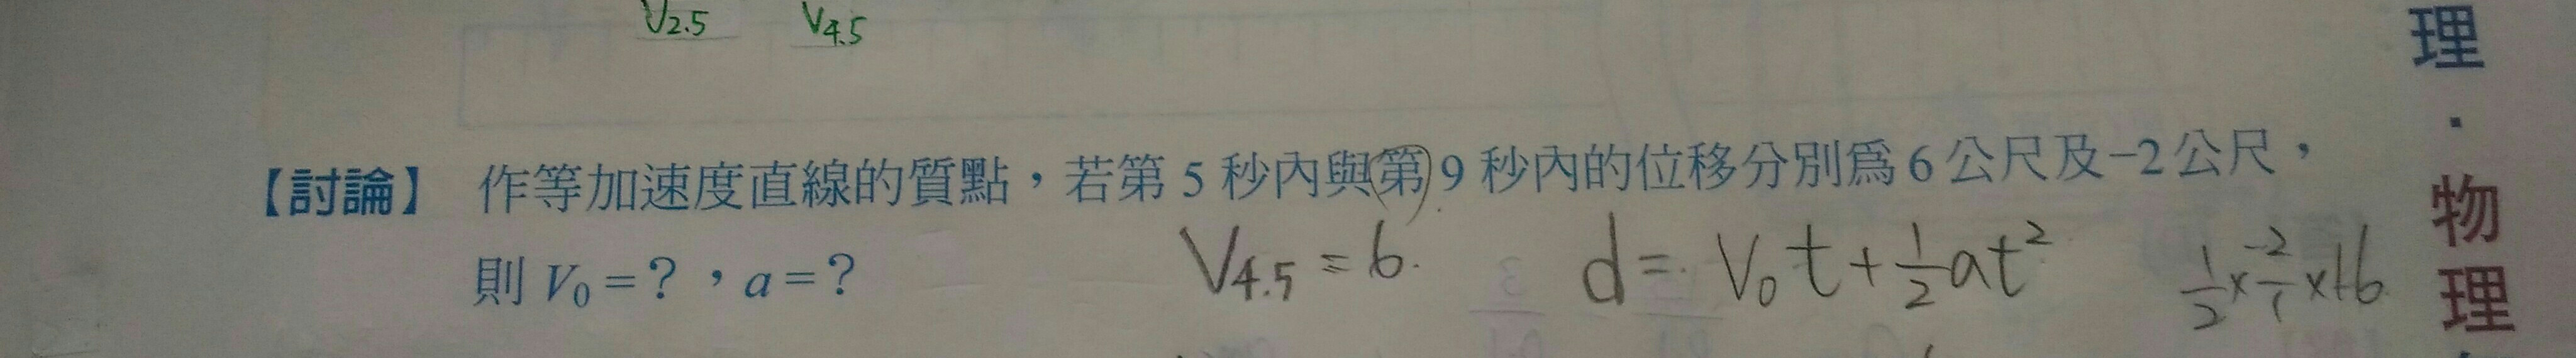 V2.5 V4.5
【討論】 作等加速度直線的質點，若第 5 秒內與第 9 秒內的位移分別為 6 公尺及 -2 公尺，
則 V₀ = ？，a = ？
V4.5 = 6. d = V₀t + ½at² ½ × -2/1 × 16
理・物理